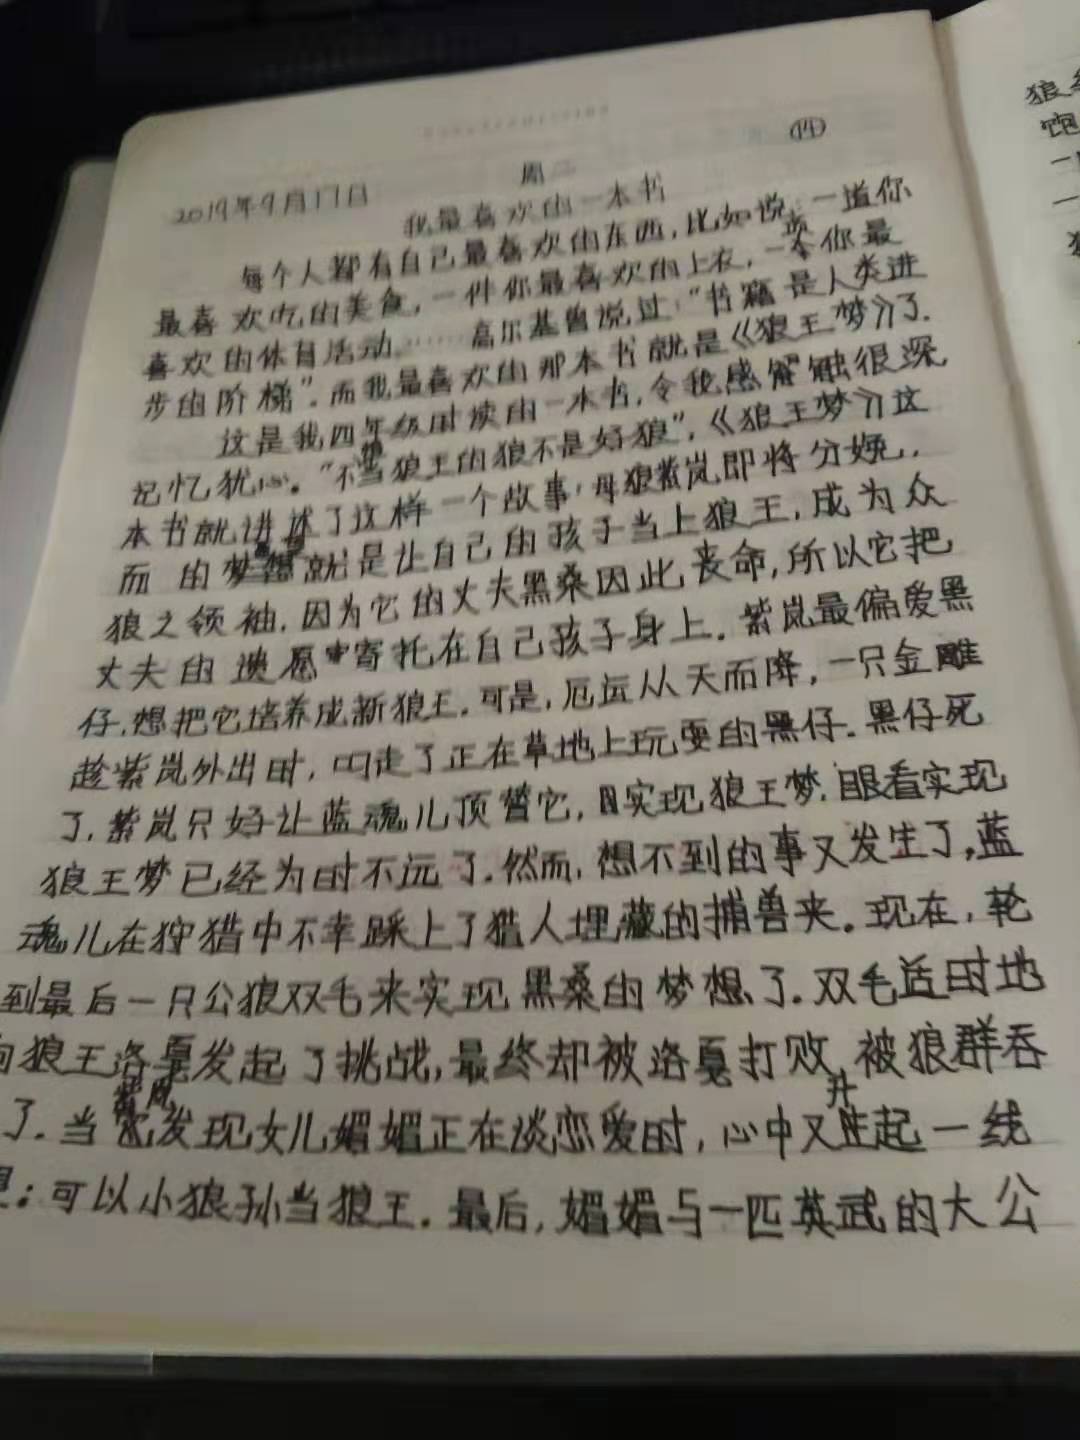 ⑭
2019年9月17日 周二
我最喜欢的一本书
每个人都有自己最喜欢的东西，比如说：一道你
最喜欢吃的美食，一件你最喜欢的上衣，一项你最
喜欢的体育活动……高尔基曾说过：“书籍是人类进
步的阶梯”。而我最喜欢的那本书就是《狼王梦》了.
这是我四年级时读的一本书，令我感触很深
记忆犹心。“不想当狼王的狼不是好狼”，《狼王梦》这
本书就讲述了这样一个故事：母狼紫岚即将分娩，
而 的梦想就是让自己的孩子当上狼王，成为众
狼之领袖，因为它的丈夫黑桑因此丧命，所以它把
丈夫的遗愿寄托在自己孩子身上。紫岚最偏爱黑
仔，想把它培养成新狼王。可是，厄运从天而降，一只金雕
趁紫岚外出时，叼走了正在草地上玩耍的黑仔。黑仔死
了，紫岚只好让蓝魂儿顶替它，实现狼王梦，眼看实现
狼王梦已经为时不远了。然而，想不到的事又发生了，蓝
魂儿在狩猎中不幸踩上了猎人埋藏的捕兽夹。现在，轮
到最后一只公狼双毛来实现黑桑的梦想了。双毛适时地
向狼王洛戛发起了挑战，最终却被洛戛打败，被狼群吞
了。当紫岚发现女儿媚媚正在谈恋爱时，心中又升起一线
：可以小狼孙当狼王。最后，媚媚与一匹英武的大公
狼
饱
一
一